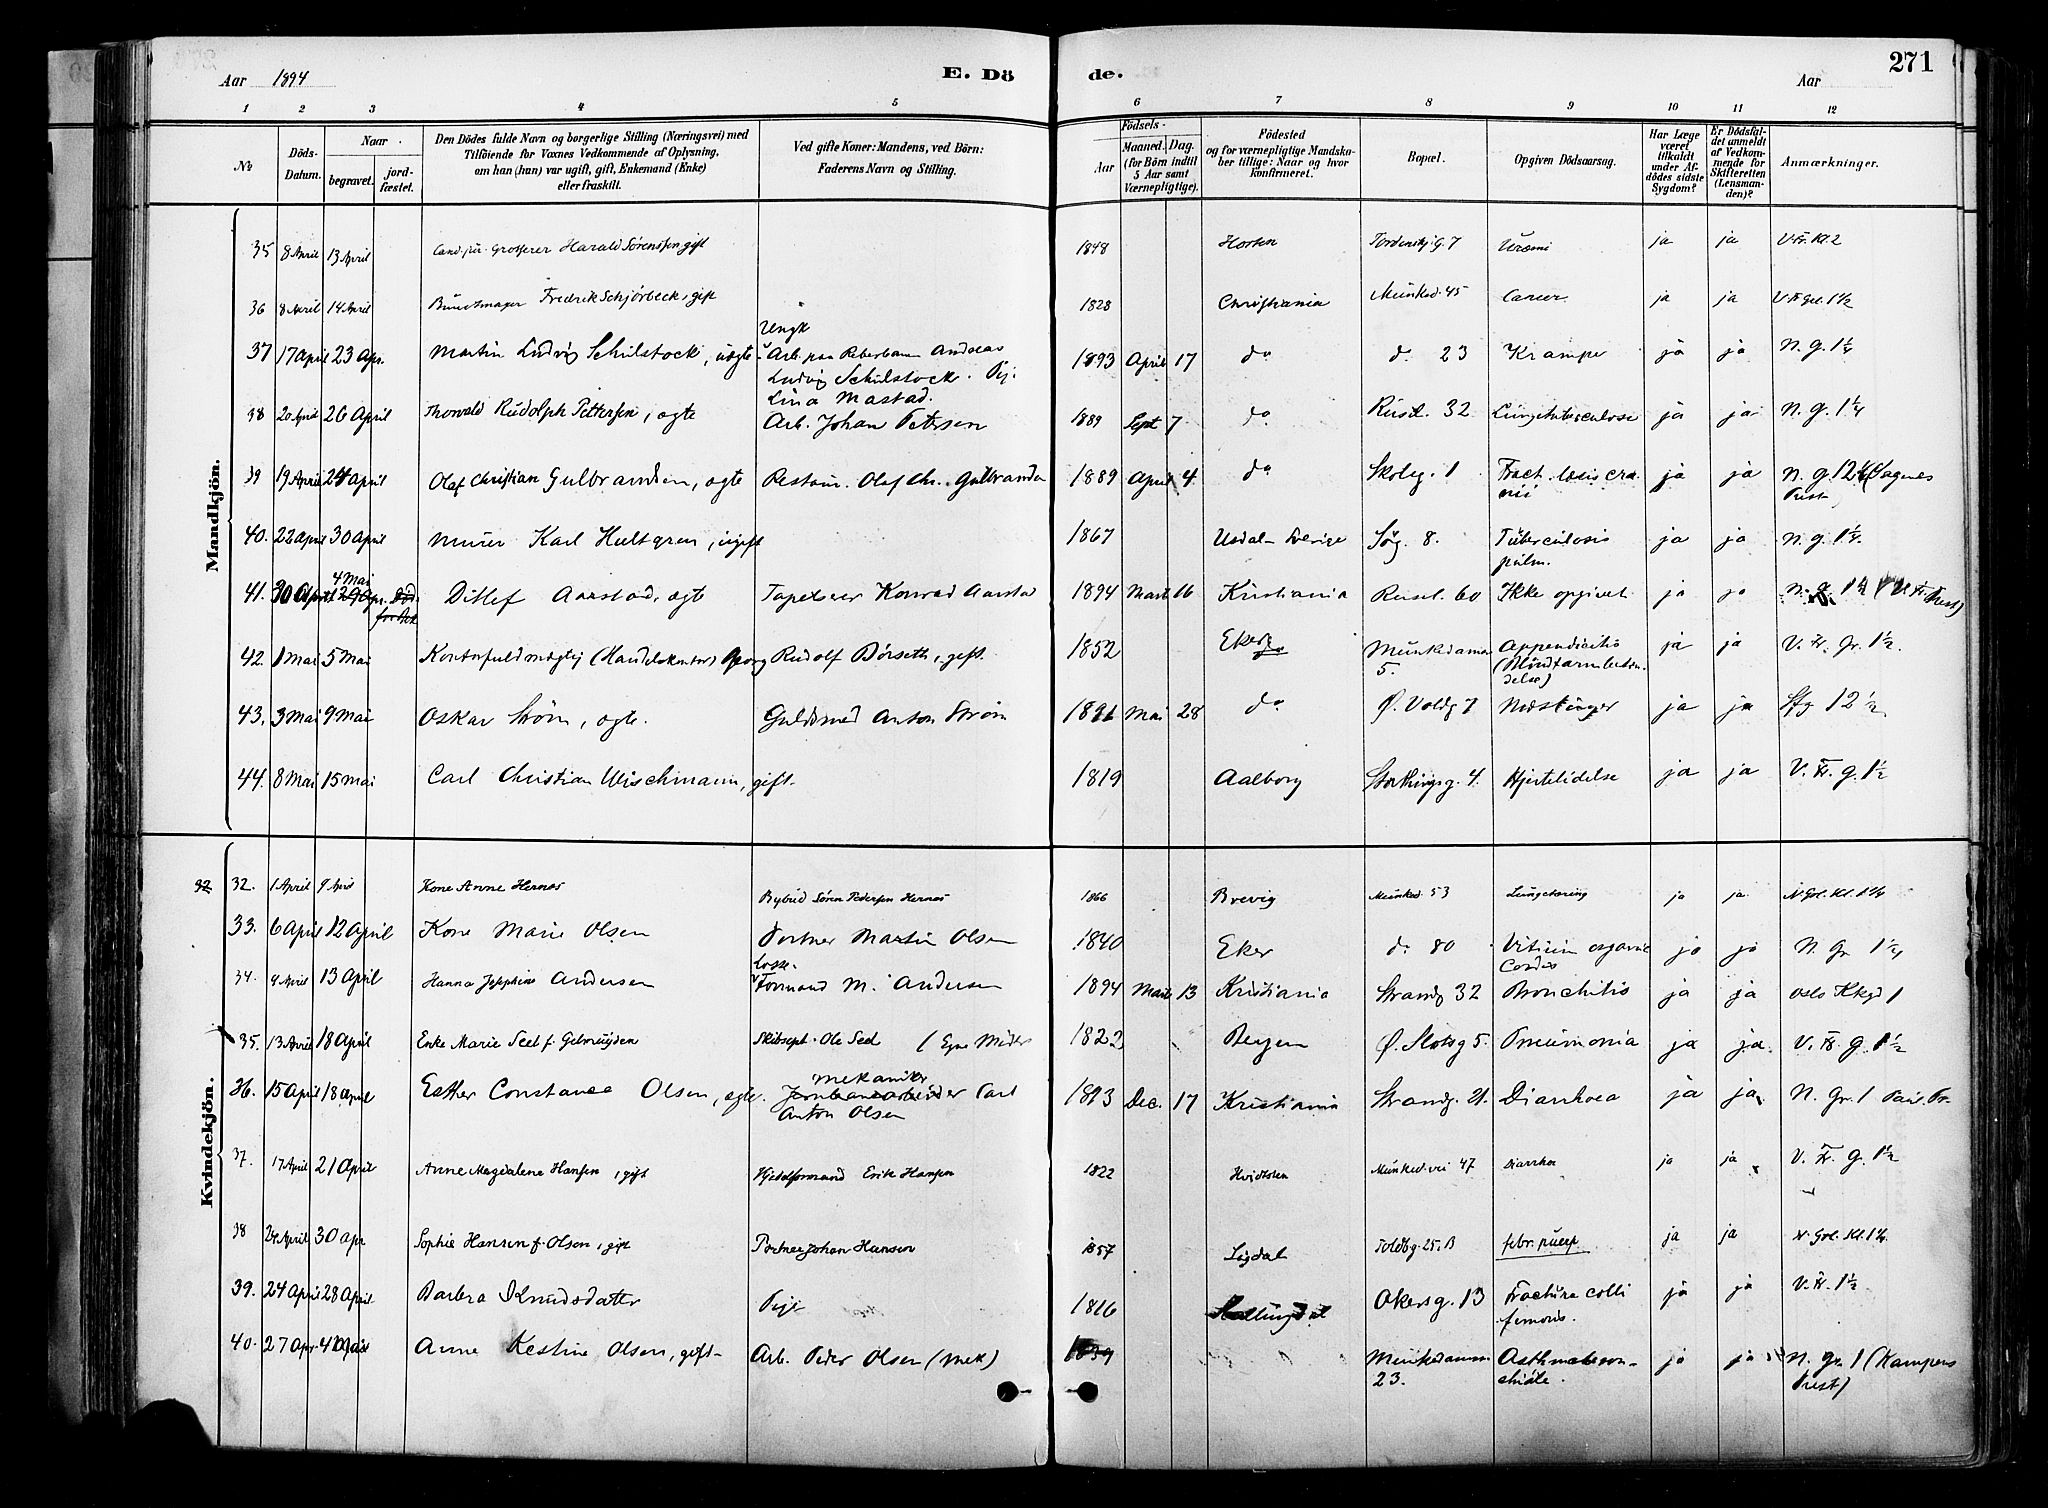 271
Aar 1894
E. Dö
de.
Aar
1 2 3 4 5 6 7 8 9 10 11 12
No
Döds-
Datum.
Naar
begravet.
jord-
fæstet.
Den Dödes fulde Navn og borgerlige Stilling (Næringsvei) med
Tilföiende for Voxnes Vedkommende af Oplysning,
om han (hun) var ugift, gift, Enkemand (Enke)
eller fraskilt.
Ved gifte Koner: Mandens, ved Börn:
Faderens Navn og Stilling.
Födsels-
Aar
Maaned. Dag.
(for Börn indtil
5 Aar samt
Værnepligtige).
Födested
og for værnepligtige Mandska-
ber tillige: Naar og hvor
konfirmeret.
Bopæl.
Opgiven Dödsaarsag.
Har Læge
været
tilkaldt
under Af-
dödes sidste
Sygdom?
Er Dödsfal-
det anmeldt
af Vedkom-
mende for
Skifteretten
(Lensman-
den)?
Anmærkninger.
Mandkjön.
35 8 April 13 April Cand jur. Grosserer Harald Sørenssen gift 1848 Horten Tordenskj. G. 7 Uræmi ja ja V. Fr. Kl. 2
36 8 April 14 April Buntmager Fredrik Schjørbeck, gift 1828 Christiania Munked. 45 Cancer ja ja V Fr Gr. 1 1/2
Ungk
37 17 April 23 Apr. Martin Ludvig Schulstock, uægte Arb. paa Reberbanen Andreas 1893 April 17 do d. 23 Krampe ja ja N. G. 1 1/4
Ludvig Schulstock. Pig.
Lina Mastad.
38 20 April 26 April Thorvald Rudolph Pettersen, ægte Arb. Johan Petersen 1889 Sept 7 do Rusel. 32 Lungetuberculose ja ja N. G. 1 1/4
39 19 April 24 April Olaf Christian Gulbrandsen, ægte Restaur. Olaf Chr. Gulbrandsen 1889 April 4 do Skoleg. 1 Fract. basis cra- ja ja N. G. 12 1/2 (Sagenes
nii Prest)
40. 22 April 30 April Murer Karl Hultgren, ugift 1867 Usdal Sverige Søg. 8. Tuberculosis ja ja N. G. 1 1/4.
pulm.
4 Mai
41. 30 April Ditlef Aarstad, ægte Tapetserer Konrad Aarstad 1894 Marts 16 Kristiania Rusel. 60 Ikke opgivet ja ja N. G. 1 1/4 (V. Fr. Prest)
42. 1 Mai 5 Mai Kontorfuldmægtig (Handelskontor) Georg Rudolf Børseth, gift. 1852 Eker Munkedamsv. Appendicitis ja ja V. Fr. Gr. 1 1/2.
5. (Blindtarmbetæn-
delse)
43. 3 Mai 9 Mai Oskar Strøm, ægte. Guldsmed Anton Strøm 1891 Mai 28 do Ø. Voldg 7 Meslinger ja ja Sfg 12 1/2
44. 8 Mai 15 Mai Carl Christian Wischmann, gift. 1819 Aalborg Storthingsg. 4. Hjertelidelse ja ja V. Fr. G. 1 1/2
Kvindekjön.
32 32. 1 April 9 April Kone Anne Hernæs Bybud Søren Pedersen Hernæs 1866 Brevig Munked 53 Lungetæring ja ja N Grl. Kl. 1 1/4
33. 6 April 12 April Kone Marie Olsen Portner Martin Olsen 1840 Eker d. 80 Vitium organic ja ja N. Gr 1 1/4
Cordis
Losse-
34. 9 April 13 April Hanna Josephine Andersen Formand M. Andersen 1894 Marts 13 Kristiania Strandg 32 Bronchitis ja ja Oslo Kkgd 1
35. 13 April 18 April Enke Marie Seel f. Gelmuyden Skibscpt. Ole Seel (Egne Midler 1822 Bergen Ø. Slotsg 5. Pneumonia ja ja V. Fr. G. 1 1/2
mekaniker
36. 15 April 18 April Esther Constance Olsen, ægte. Jernbanearbeider Carl 1893 Dec. 17 Kristiania Strandg. 21. Diarrhoea ja ja N. Gr. 1 Paul. Pr.
Anton Olsen
37. 17 April 21 April Anne Magdalene Hansen, gift Hjedelformand Erik Hansen 1822 Hvidtsten Munked.vei 47 Diarrhoe ja ja V. Fr. G. 1 1/2
38 24 April 30 Apr Sophie Hansen f. Olsen, gift Portner Johan Hansen 1857 Sigdal Toldbg. 25. B febr. puerp. ja ja N Grl. Kl. 1 1/4
39. 24 April 28 April Barbra Knudsdatter Pige 1816 Hallingdal Akersg. 13 Fractura colli ja ja V. Fr. 1 1/2
femoris.
40. 27 Apr. 4 Mai Anne Kestine Olsen, gift Arb. Peder Olsen (Mek) 1839 Munkedamsv. Asthma bron- ja ja N. Gr. 1 (Kampens
23. chiale. Prest)